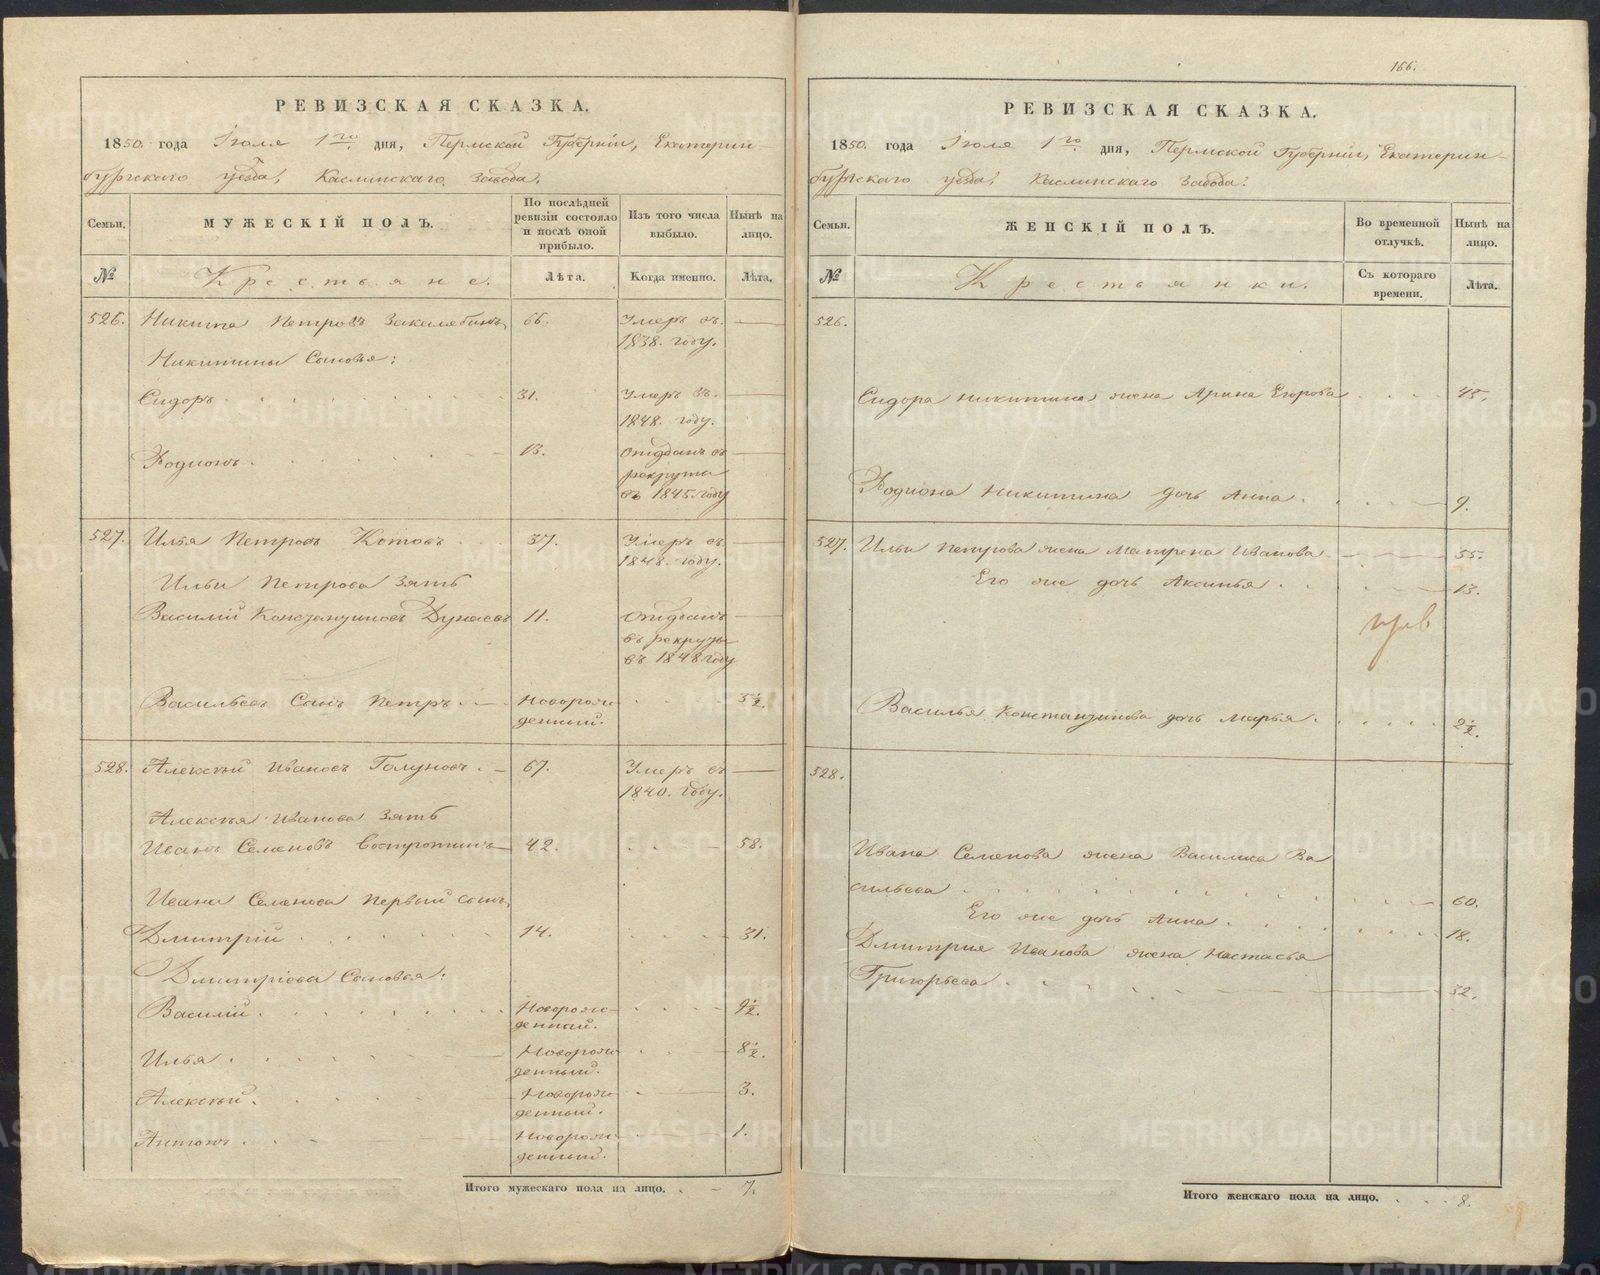 РЕВИЗСКАЯ СКАЗКА.
1850. года Іюля 1го. дня, Пермской Губерніи, Екатерин-
бургскаго уѣзда, Каслинскаго Завода.
Семьи.
МУЖЕСКІЙ ПОЛЪ.
По послѣдней ревизіи состояло и послѣ оной прибыло.
Изъ того числа выбыло.
Нынѣ на лицо.
№
Крестьяне.
Лѣта.
Когда именно.
Лѣта.
526. Никита Петровъ 66. Умеръ въ
1838. году.
Никитины Сыновья:
Сидоръ 31. Умеръ въ
1848. году.
Родіонъ 13. Отданъ въ
рекруты
въ 1845. году
527. Илья Петровъ Котовъ 37. Умеръ въ
1848. году.
Ильи Петрова Зять
Василій Константиновъ Дунаевъ 11. Отданъ
въ рекруты
въ 1848 году
Васильевъ Сынъ Петръ Новорож 5½.
денный.
528. Алексѣй Ивановъ Голуновъ 67. Умеръ въ
1840. году.
Алексѣя Иванова Зять
Иванъ Семеновъ Востротинъ 42. 58.
Ивана Семенова Первый сынъ,
Дмитрій 14. 31.
Дмитріева Сыновья:
Василій Новорож- 9½.
денный.
Илья Новорож 8½.
денный.
Алексѣй Новорож 3.
денный.
Антонъ Новорож 1.
денный.
Итого мужескаго пола на лицо. 7.
166.
РЕВИЗСКАЯ СКАЗКА.
1850. года Іюля 1го. дня, Пермской Губерніи, Екатерин-
бургскаго уѣзда, Каслинскаго Завода.
Семьи.
ЖЕНСКІЙ ПОЛЪ.
Во временной отлучкѣ.
Нынѣ на лицо.
№
Крестьянки.
Съ котораго времени.
Лѣта.
526.
Сидора Никитина жена Арина Егорова 45.
Родіона Никитина дочь Анна 9.
527. Ильи Петрова жена Матрена Иванова 55.
Его же дочь Аксинья 13.
Василья Константинова дочь Марья 2½.
528.
Ивана Семенова жена Василиса Ва
сильева 60.
Его же дочь Анна 18.
Дмитрія Иванова жена Настасья
Григорьева 32.
Итого женскаго пола на лицо. 8.
METRIKI.GASO-URAL.RU